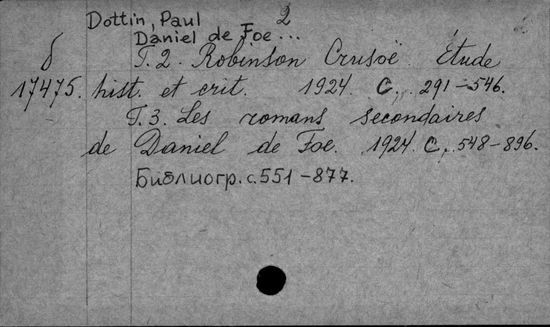 Dottin, Paul 2
Daniel de Foe...
б T.2. Robinson Crusoë. Étude
17475. hist. et crit. 1924. C., 291-546.
T.3. Les romans secondaires
de Daniel de Foe. 1924. C., 548-896.
Библиогр. с. 551-877.